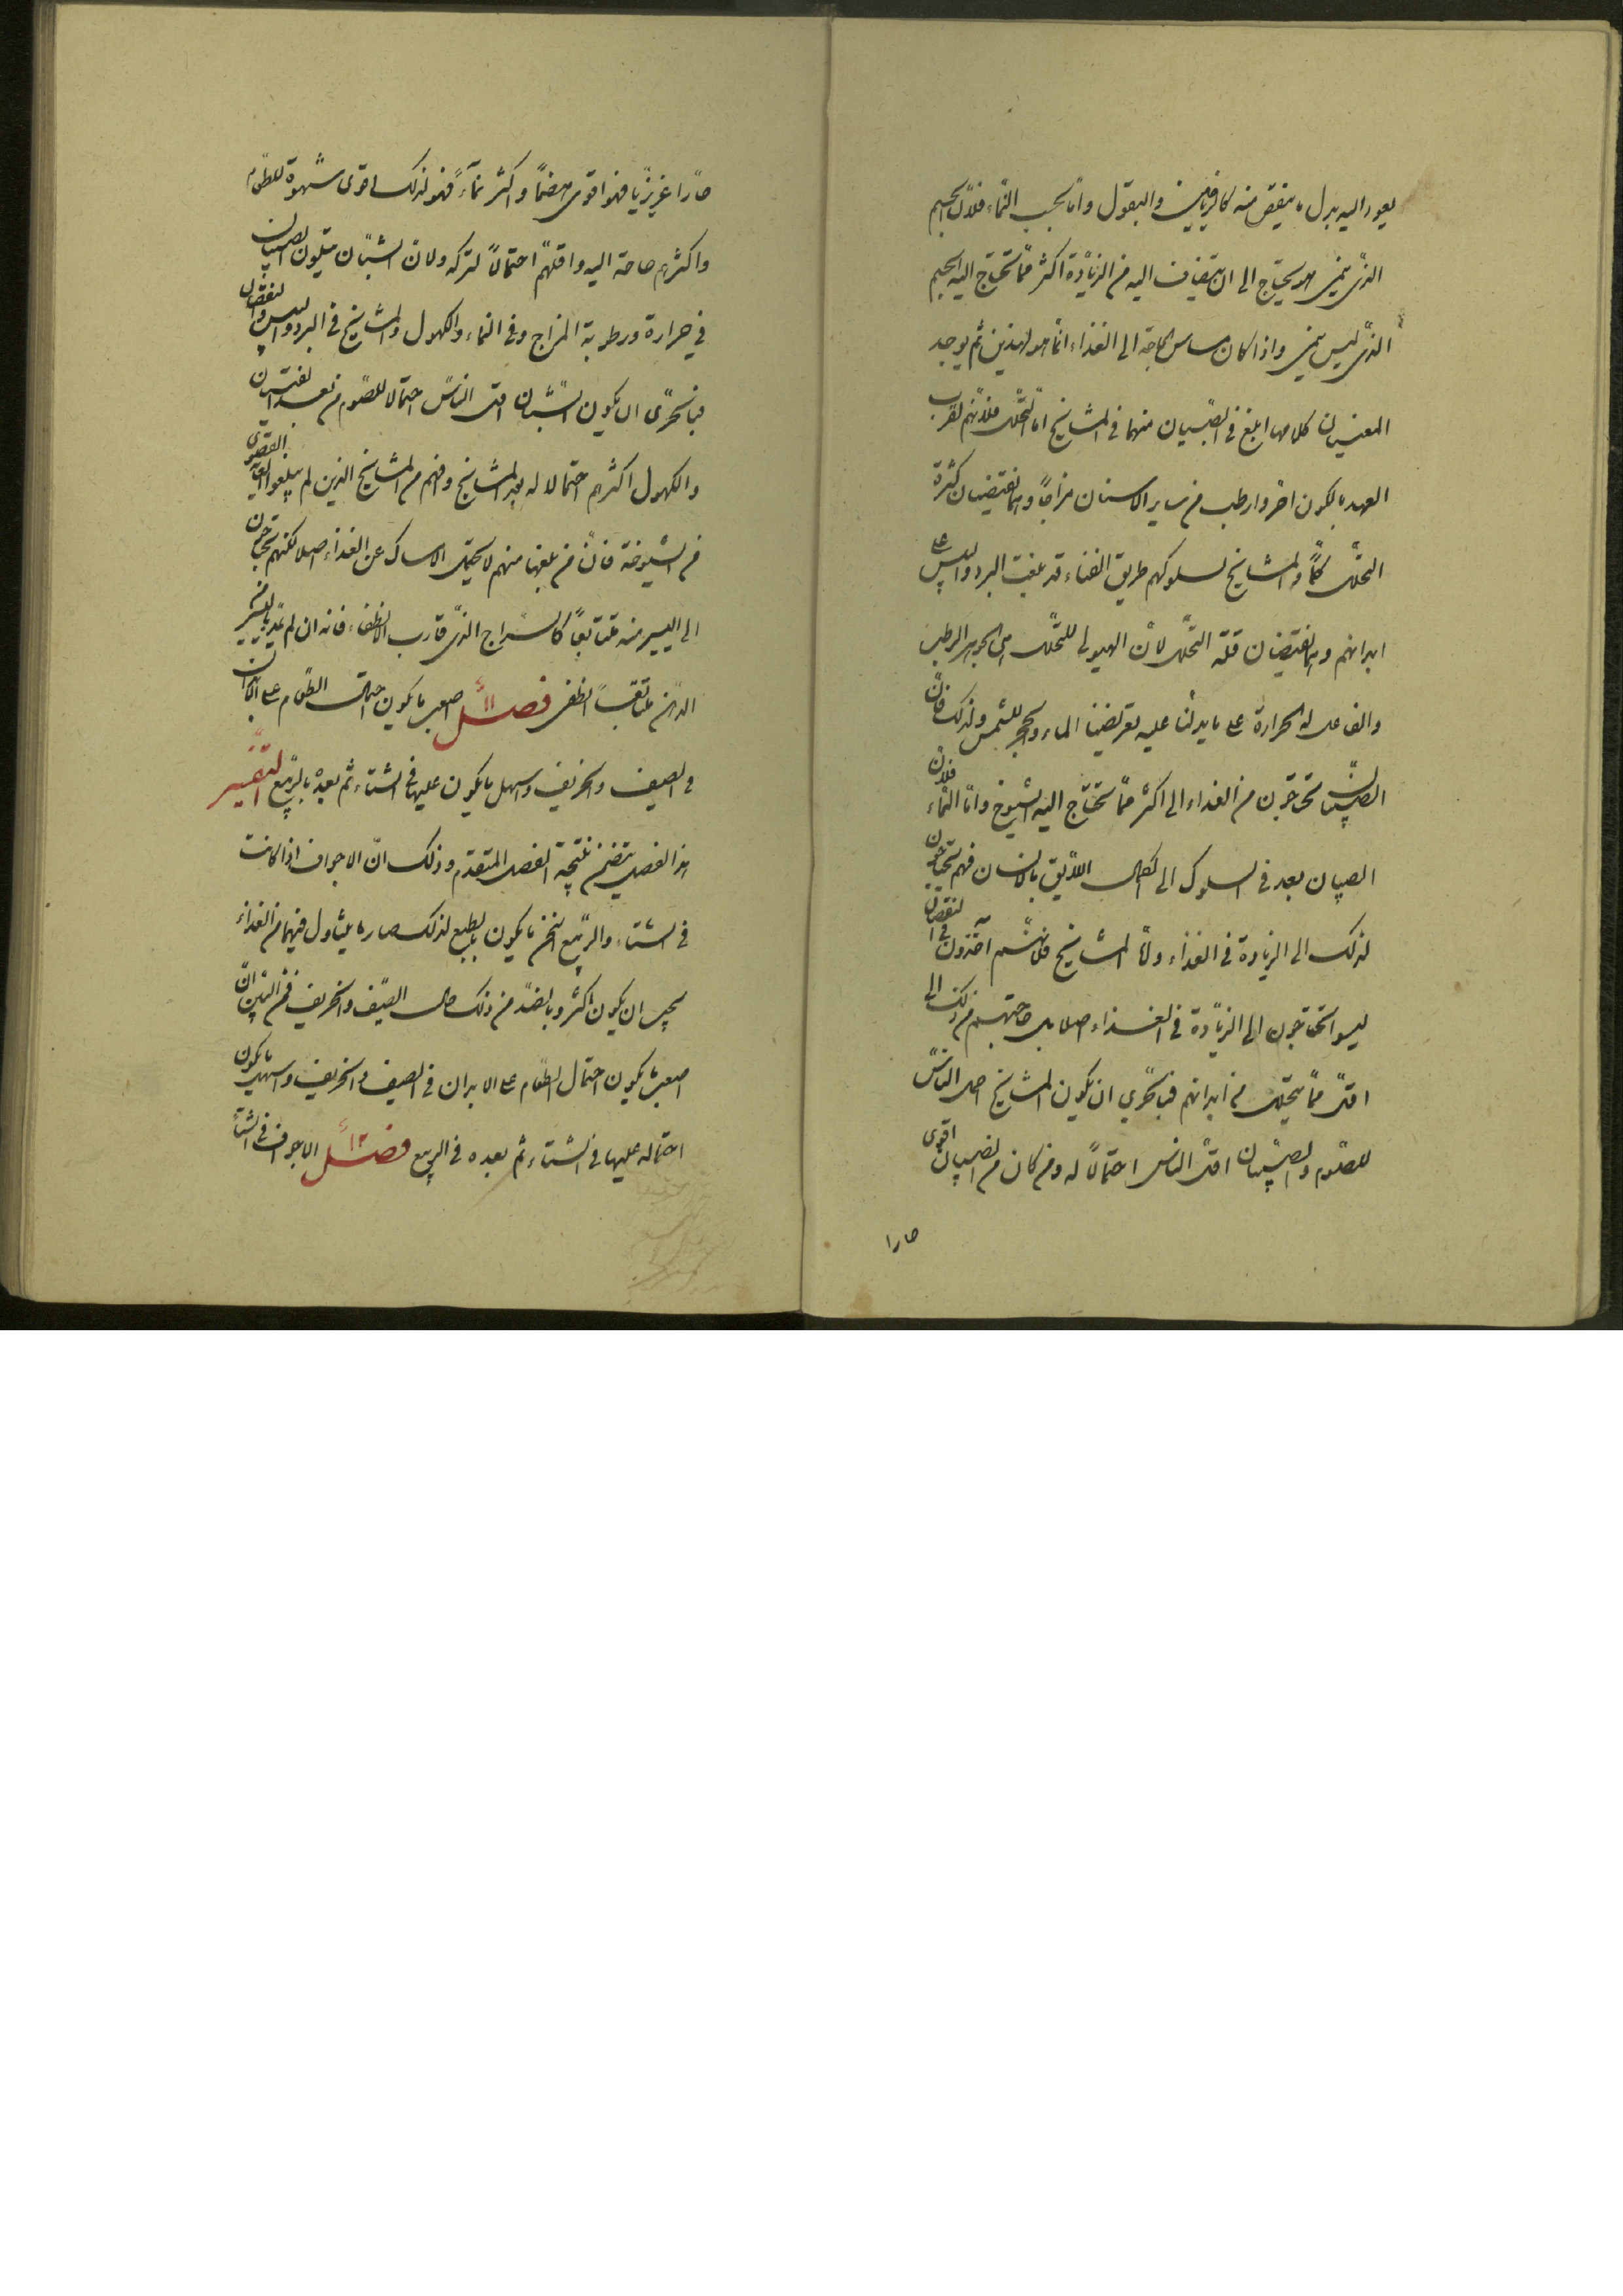 يعود اليه بدل ما ينقص منه كالرياحين والبقول واما بحسب النماء فلان الجسم
الذى ينمى هو يحتاج الى ان يضاف اليه من الزيادة اكثر مما يحتاج اليه الجسم
الذى ليس ينمى واذا كان مساس الحاجة الى الغذاء انما هو لهذين ثم يوجد
المعنيان كلاهما ابلغ فى الصبيان منهما فى المشايخ اما التحلل فلانهم لقرب
العهد بالكون احر وارطب من ساير الاسنان مزاجا وهما يقتضيان كثرة
التحلل كما والمشايخ لسلوكهم طريق الفناء قد غلبت البرد واليبس على
ابدانهم وهما يقتضيان قلة التحلل لان الهيولى للتحلل هى الجوهر الرطب
والفاعل له الحرارة على ما يدلنا عليه تعريضنا الماء والحجر للشمس ولذلك فان
الصبيان يحتاجون من الغداء الى اكثر مما يحتاج اليه الشيوخ واما النماء فلان
الصبيان بعد فى السلوك الى الكمال اللايق بالانسان فهم يحتاجون
لذلك الى الزيادة فى الغذاء واما المشايخ فلانهم آخذون فى النقصان
ليسوا يحتاجون الى الزيادة فى الغذاء اصلا بل حاجتهم من ذلك الى
اقل مما يتحلل من ابدانهم فبالحري ان يكون المشايخ احمل الناس
للصوم والصبيان اقل الناس احتمالا له ومن كان من الصبيان اقوى
حارا
حارا غريزيا فهو اقوى هضما واكثر نماء فهو لذلك اقوى شهوة للطعام
واكثرهم حاجة اليه واقلهم احتمالا لتركه ولان الشبان يتلون الصبيان
فى حرارة ورطوبة المزاج وفى النماء والكهول والمشايخ فى البرد واليبس والنقصان
فبالحرى ان يكون الشبان اقل الناس احتمالا للصوم من بعد الفتيان
والكهول اكثرهم احتمالا له بعد المشايخ وافهم من المشايخ الذين لم يبلغوا الغاية القصوى
من الشيوخة فان من بلغها منهم لا يحتمل الامساك عن الغذاء اصلا لكنهم يحتاجون
الى اليسير منه متتابعا كالسراج الذى قارب الانطفاء فانه ان لم يمد باليسير من
الدهن متعاقبا انطفى فصل ١١ اصعب ما يكون احتمال الطعام على الابدان
فى الصيف والخريف واسهل ما يكون عليها فى الشتاء ثم بعده بالربيع التفسير
هذا الفصل يتضمن نتيجة الفصل المتقدم وذلك ان الاجواف اذا كانت
فى الشتاء والربيع اسخن ما يكون بالطبع لذلك صار ما يتناول فيهما من الغذاء
يجب ان يكون اكثر وبالضد من ذلك حال الصيف والخريف فمن البين ان
اصعب ما يكون احتمال الطعام على الابدان فى الصيف والخريف واسهل ما يكون
احتماله عليها فى الشتاء ثم بعده فى الربيع فصل ١٢ الاجواف فى الشتاء